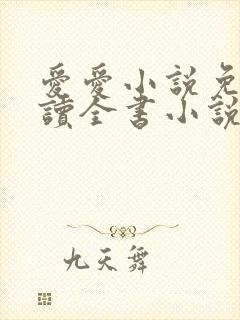 愛愛小說免
讀全書小說
九天舞